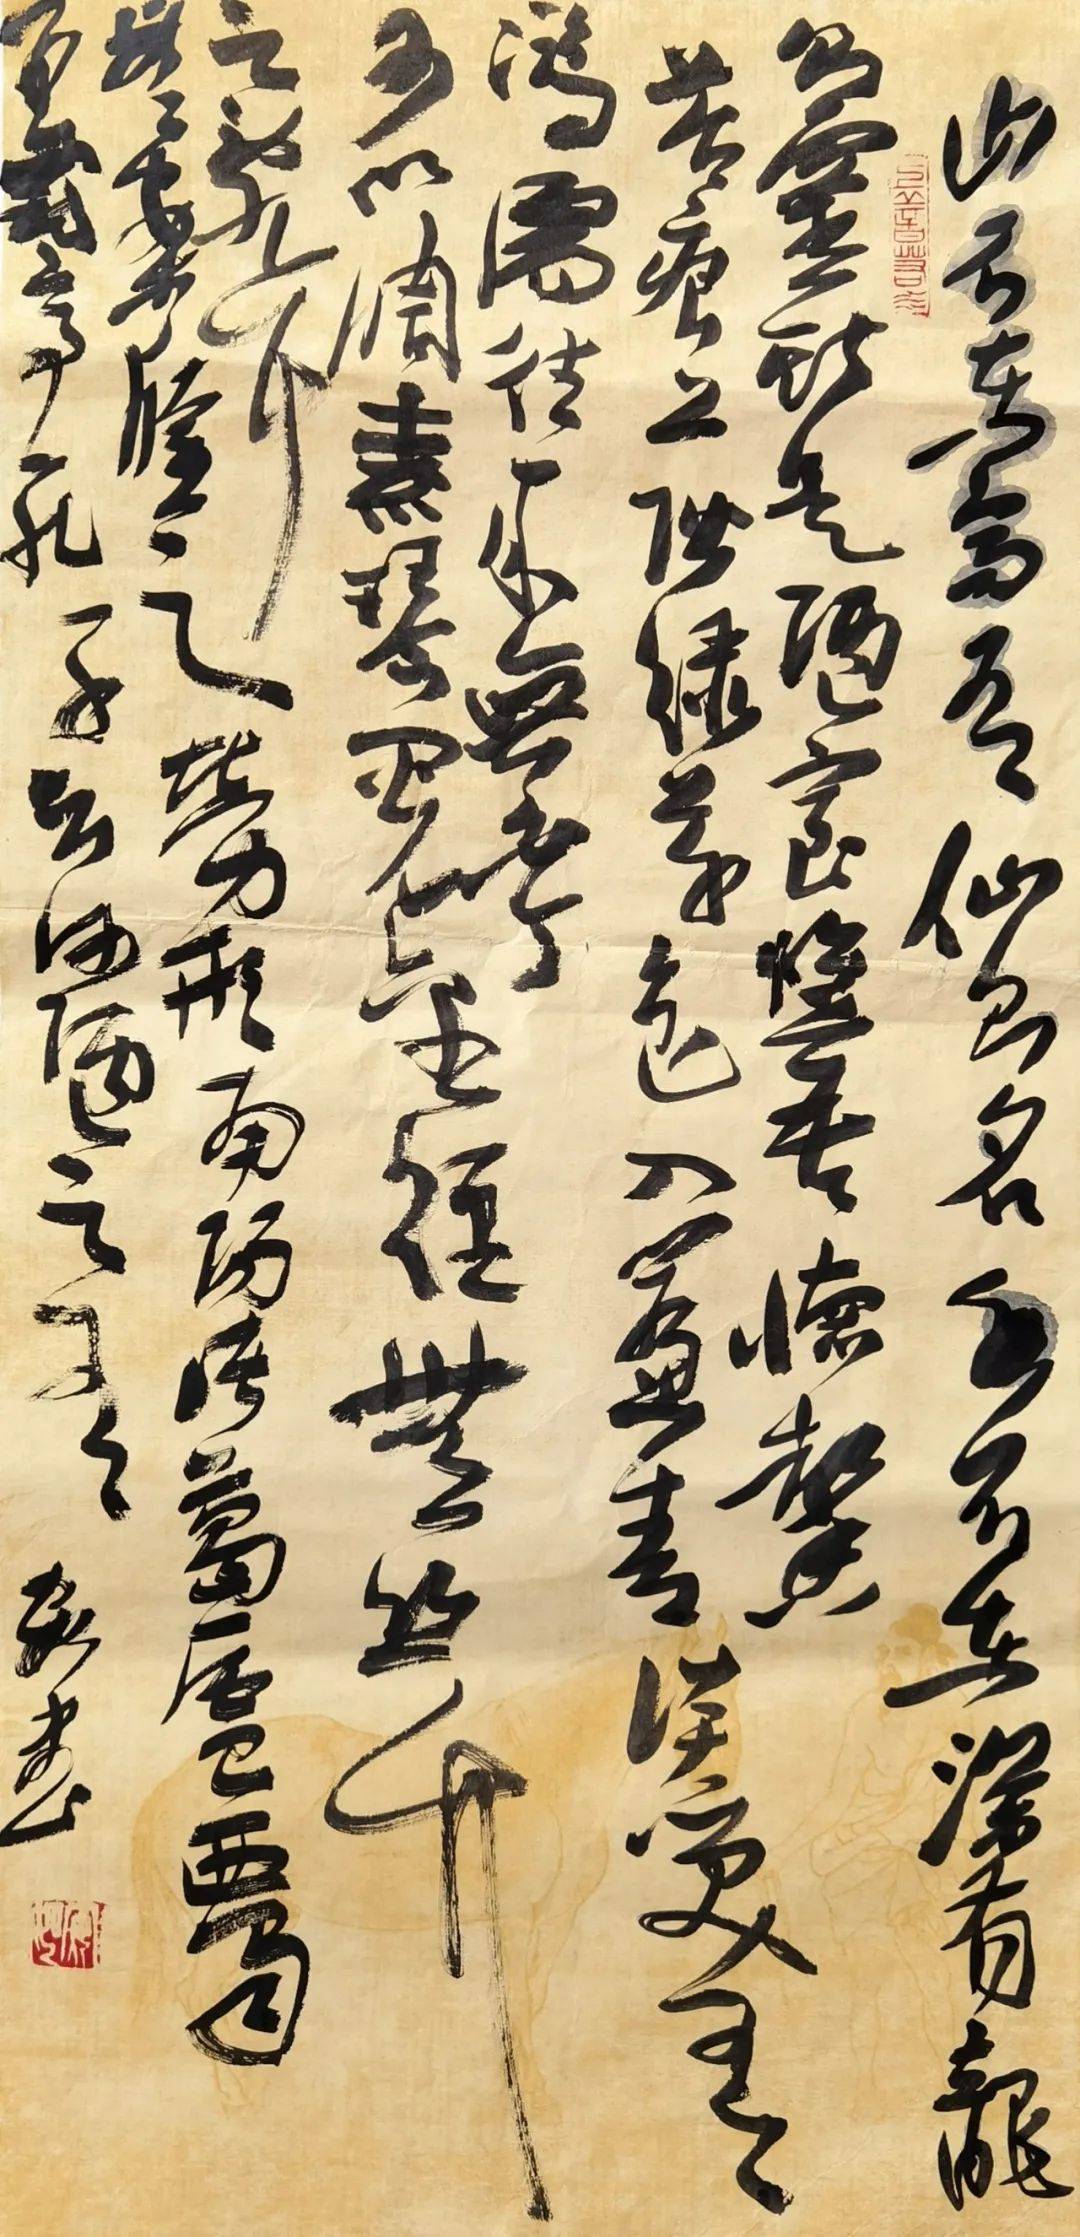 山不在高有仙則名水不在深有龍
則靈斯是陋室惟吾德馨
苔痕上階綠草色入簾青談笑有
鴻儒往来無白丁
可以調素琴閱金經無丝竹
之亂耳
無案牘之勞形南陽諸葛廬西蜀
子雲亭孔子云何陋之有
書